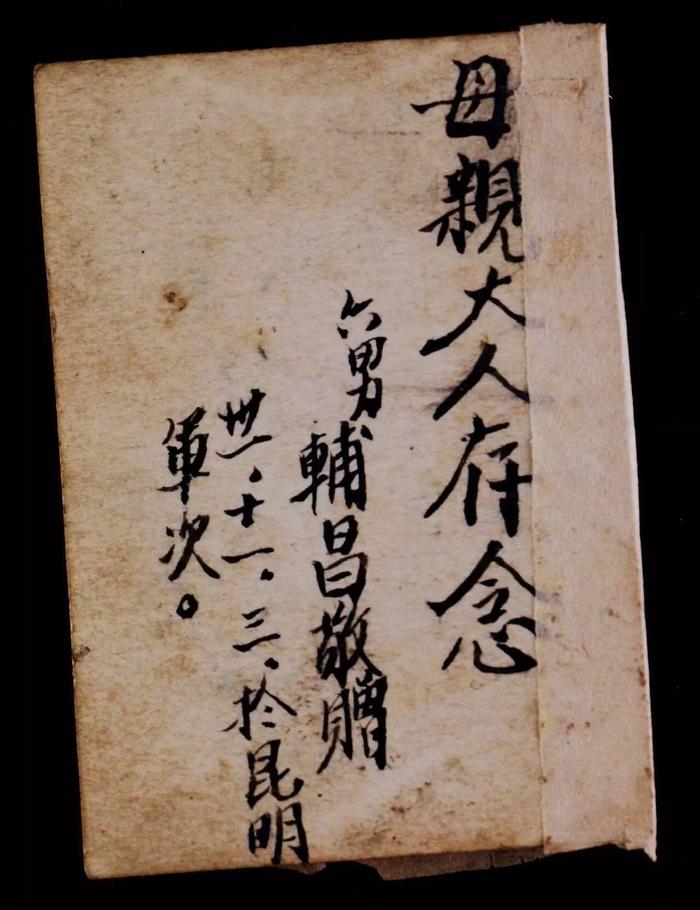 母親大人存念
六男輔昌敬贈
卅一.十一.三.於昆明
軍次。